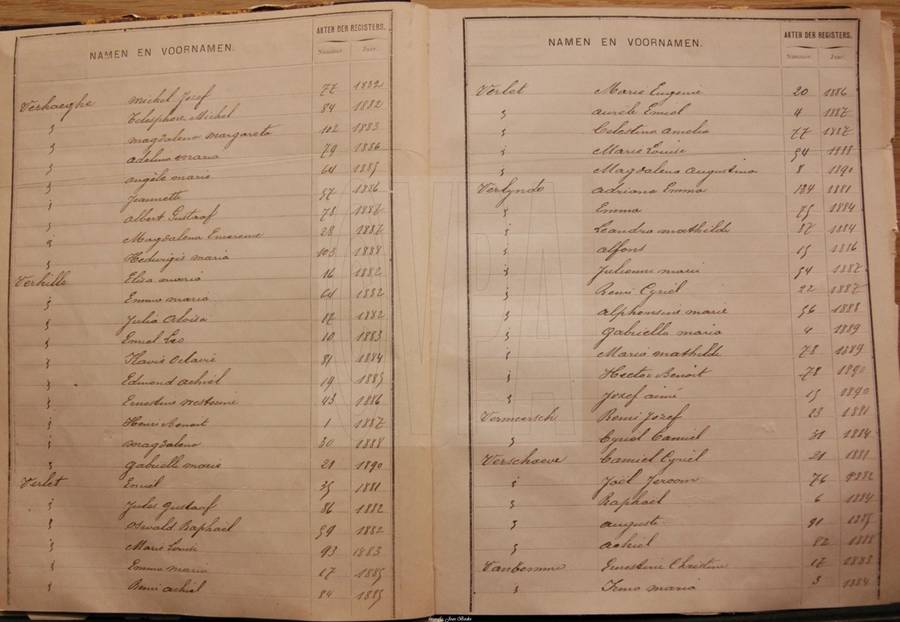 NAMEN EN VOORNAMEN. AKTEN DER REGISTERS.
Nummer. Jaar.
Verhaeghe Michel Jozef 77 1882
" Telesphore Michel 84 1882
" Magdalena Margareta 102 1883
" Adelina Maria 79 1886
" Angèle Marie 64 1885
" Jeannette 57 1886
" Albert Gustaaf 78 1886
" Magdalena Emerence 28 1887
" Hedwigis Maria 103 1888
Verhille Elisa Maria 16 1882
" Emma Maria 64 1882
" Julia Aloïsa 12 1882
" Emiel Leo 10 1883
" Flavie Octavie 81 1884
" Edmond Achiel 19 1885
" Ernestine 43 1886
" Henri Benoit 1 1887
" Magdalena 30 1888
" Gabrielle Marie 21 1890
Verlet Emiel 35 1881
" Jules Gustaaf 86 1882
" Oswald Raphael 59 1882
" Marie Louise 93 1883
" Emma Maria 17 1885
" Remi Achiel 84 1885
NAMEN EN VOORNAMEN. AKTEN DER REGISTERS.
Nummer. Jaar.
Verlet Marie Eugenie 20 1886
" Aurèle Emiel 4 1887
" Celestina Amelia 77 1887
" Marie Louise 54 1888
" Magdalena Augustina 8 1890
Verlynde Adriana Emma 124 1881
" Emma 75 1884
" Leandra Mathilde 87 1884
" Alfons 15 1886
" Julienne Marie 54 1887
" Remi Cyriel 22 1887
" Alphonsine Marie 56 1888
" Gabrielle Maria 4 1889
" Maria Mathilde 78 1889
" Hector Benoit 78 1890
" Jozef Aimé 15 1890
Vermeersch Remi Jozef 23 1881
" Cyriel Camiel 31 1884
Verschaeve Camiel Cyriel 21 1881
" Joël Jeroom 76 1882
" Raphael 6 1884
" Auguste 91 1885
" Achiel 82 1888
Ernestine Christine 17 1883
" Irma Maria 3 1884